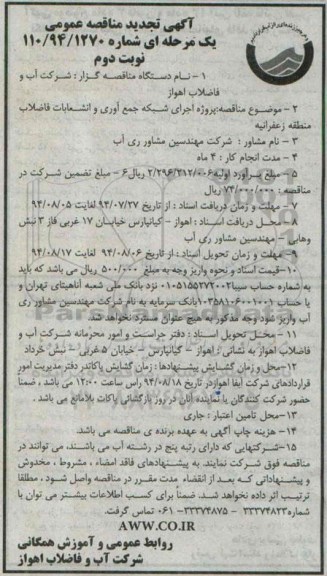 آگهی تجدید مناقصه عمومی
یک مرحله ای شماره ۱۱۰/۹۴/۱۲۷۰
نوبت دوم
۱ - نام دستگاه مناقصه گزار : شرکت آب و
فاضلاب اهواز
۲ - موضوع مناقصه:پروژه اجرای شبکه جمع آوری و انشعابات فاضلاب
منطقه زعفرانیه
۳ - نام مشاور : شرکت مهندسین مشاور ری آب
۴ - مدت انجام کار : ۴ ماه
۵ - مبلغ برآورد اولیه ۲/۲۹۶/۳۱۲/۰۰۶ ریال ۶ - مبلغ تضمین شرکت در
مناقصه : ۷۴/۰۰۰/۰۰۰ ریال
۷ - مهلت و زمان دریافت اسناد : از تاریخ ۹۴/۰۷/۲۷ لغایت ۹۴/۰۸/۰۵
۸ - محل دریافت اسناد : اهواز - کیانپارس خیابان ۱۷ غربی فاز ۳ نبش
وهابی - مهندسین مشاور ری آب
۹ - مهلت و زمان تحویل اسناد : از تاریخ ۹۴/۰۸/۰۶ لغایت ۹۴/۰۸/۱۷
۱۰ - قیمت اسناد و نحوه واریز وجه به مبلغ ۵۰۰/۰۰۰ ریال می باشد که باید
به شماره حساب سیبا ۰۱۰۵۱۵۵۲۷۲۰۰۲ نزد بانک ملی شعبه آناهیتای تهران و
یا حساب بانک سرمایه به نام شرکت مهندسین مشاور ری
آب واریز شود وجه مذکور به هیچ عنوان مسترد نخواهد شد
۱۱ - محل تحویل اسناد : دفتر حراست و امور محرمانه شرکت آب و
فاضلاب اهواز به نشانی : اهواز - کیانپارس - خیابان ۵ غربی - نبش خرداد
۱۲-محل و زمان گشایش پیشنهادها : زمان گشایش پاکات در دفتر مدیریت امور
قراردادهای شرکت آبفا اهواز در تاریخ ۹۴/۰۸/۱۸ راس ساعت ۱۲:۰۰ می باشد ، ضمنا
حضور شرکت کنندگان یا نماینده آنان در روز بازگشائی پاکات بلامانع می باشد .
۱۳-محل تامین اعتبار : جاری
۱۴- هزینه چاپ آگهی به عهده برنده ی مناقصه می باشد.
۱۵-شرکتهایی که دارای رتبه پنج در رشته آب می باشند، می توانند در
مناقصه فوق شرکت نمایند به پیشنهادهای فاقد امضاء ، مشروط ، مخدوش
و پیشنهاداتی که بعد از انقضاء مدت مقرر در مناقصه واصل شود ، مطلقا
ترتیب اثر داده نخواهد شد. ضمناً برای کسب اطلاعات بیشتر می توان با
شماره ۳۳۳۷۴۸۲۳ - ۳۳۳۷۴۸۷۵ - ۰۶۱ تماس گرفت.
AWW.CO.IR
روابط عمومی و آموزش همگانی
شرکت آب و فاضلاب اهواز